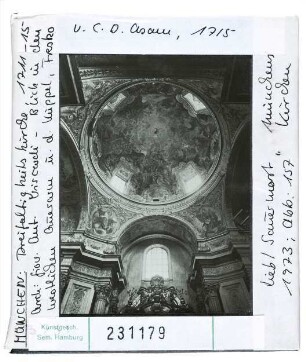 MÜNCHEN: Dreifaltigkeitskirche 1711-15
Arch: Giov. Ant. Viscardi - Blick in den
westlichen Querarm u. d. Kuppel, Fresko
v. C. D. Asam, 1715
Lit: / Sauermost "Münchens
Kirchen"
1973; Abb. 157
Kunstgesch.
Sem. Hamburg
231179